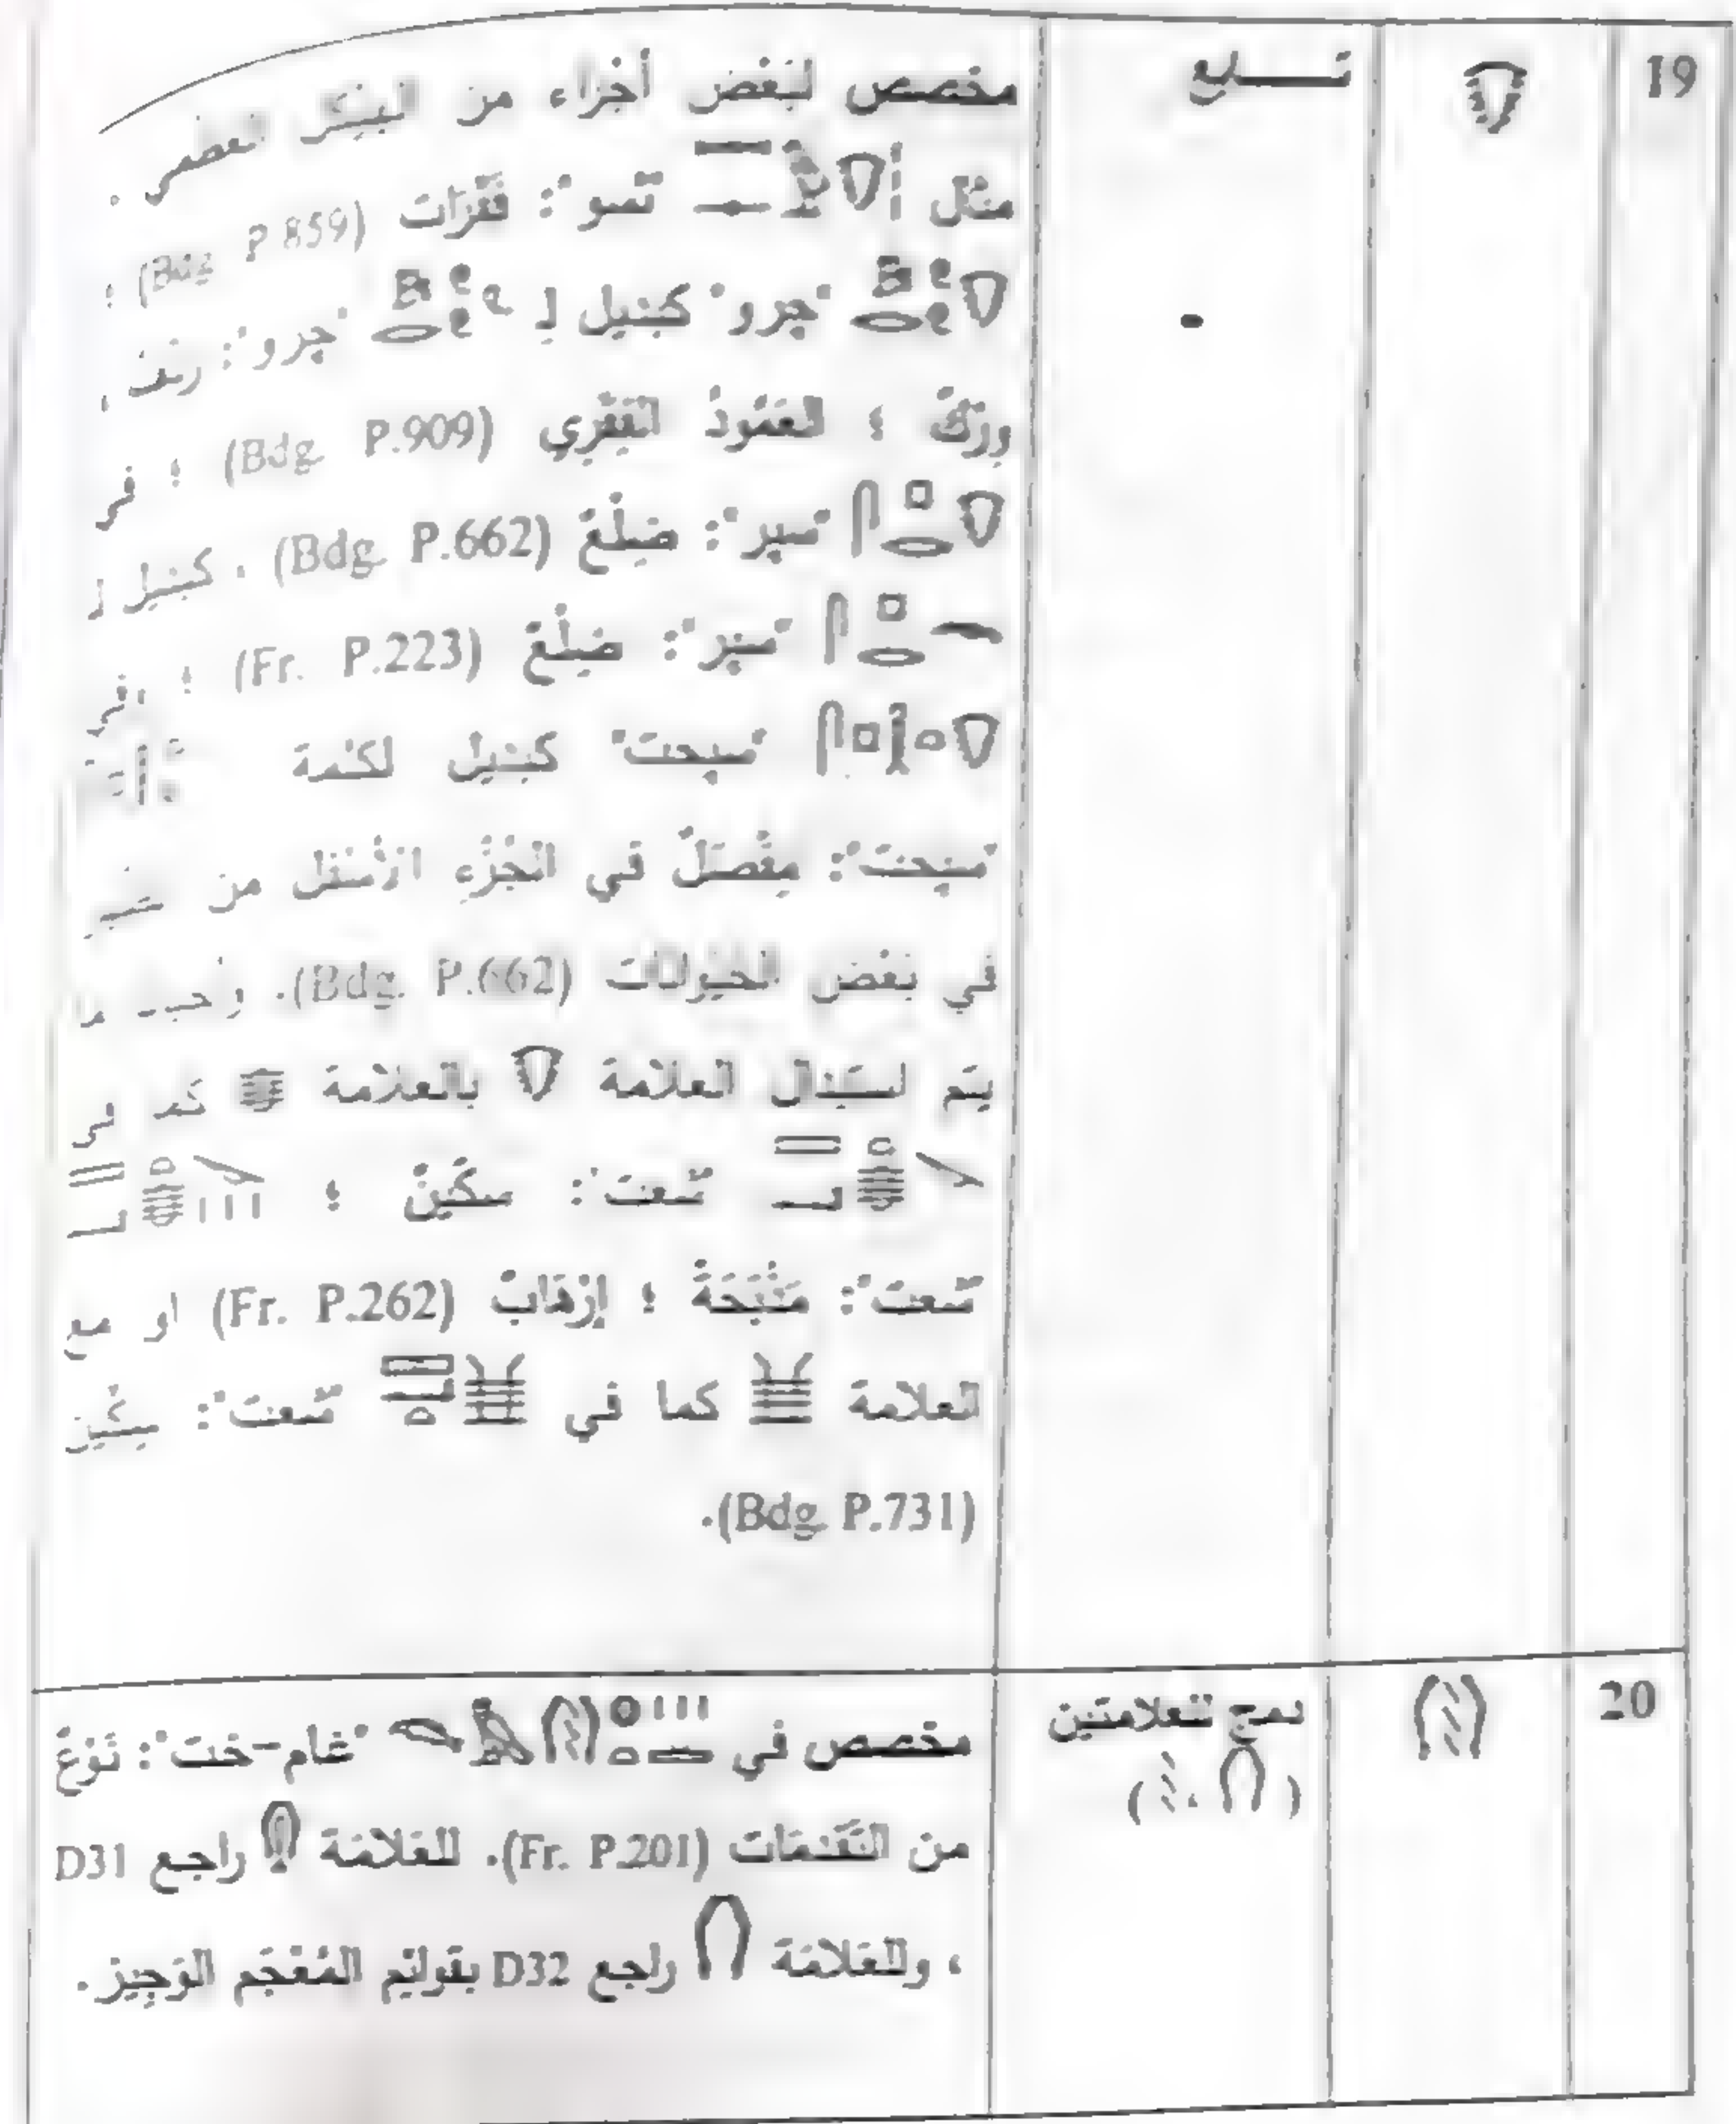 19
ضلوع
مخصص لبَعْض أجْزاء من الهيكل العظمي ،
مثل "ثسو": فَقَرَات (Bdg P.859) ؛
"چرو" كبديل لـ "چرو": ردف ،
ورْكٌ ؛ العَمُودُ الفِقَرِي (Bdg. P.909) ؛ في
"سپر": ضِلْعٌ (Bdg. P.662) ، كبديل لـ
"سپر": ضِلْعٌ (Fr. P.223) ؛ في
"سپحت" كبديل لكلمة
"سپحت": مِفْصَلٌ في الجُزْءِ الأسْفَل من
في بَعْض الحَيَوانَات (Bdg. P.662). وأحيانا ما
يتم استبدال العلامة بالعلامة كما في
"شعت": سكِّينٌ ؛
"شعت": مَذْبَحَةٌ ؛ إرْهَابٌ (Fr. P.262) او مع
العلامة كما في "شعت": سِكِّين
(Bdg. P.731).
20
دمج للعلامتين
( ، )
مخصص في "عام-خت": نَوْعٌ
من التَقْدِمَات (Fr. P.201). للعَلامَة راجع D31
، وللعَلامَة راجع D32 بقَوائِم المُعْجَم الوَجِيز.